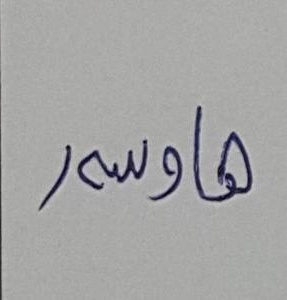 هاوسەر